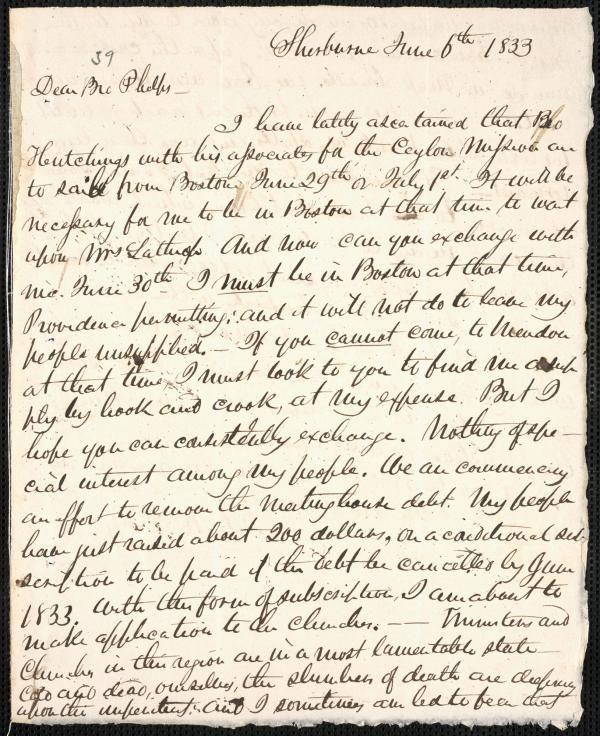 39
Sherburne June 6th 1833
Dear Bro Phelps—
I have lately ascertained that Bro
Hutchings with his associates for the Ceylon Mission are
to sail from Boston June 29th or July 1st. It will be
necessary for me to be in Boston at that time to wait
upon Mrs Lathrop And now can you exchange with
me June 30th I must be in Boston at that time,
Providence permitting; and it will not do to leave my
people unsupplied.— If you cannot come, to Mendon
at that time, I must look to you to find me a sup
ply by hook and crook, at my expense. But I
hope you can consistently exchange. Nothing of spe—
cial interest among my people. We are commencing
an effort to remove the Meetinghouse debt. My people
have just raised about 200 dollars, on a conditional sub
scription to be paid if the debt be cancelled by June
1833. With this form of subscription, I am about to
make application to the churches. —— Ministers and
Churches in this region are in a most lamentable state
cold and dead, ourselves, the slumbers of death are deepening
upon the impenitent. and I sometimes am led to fear that